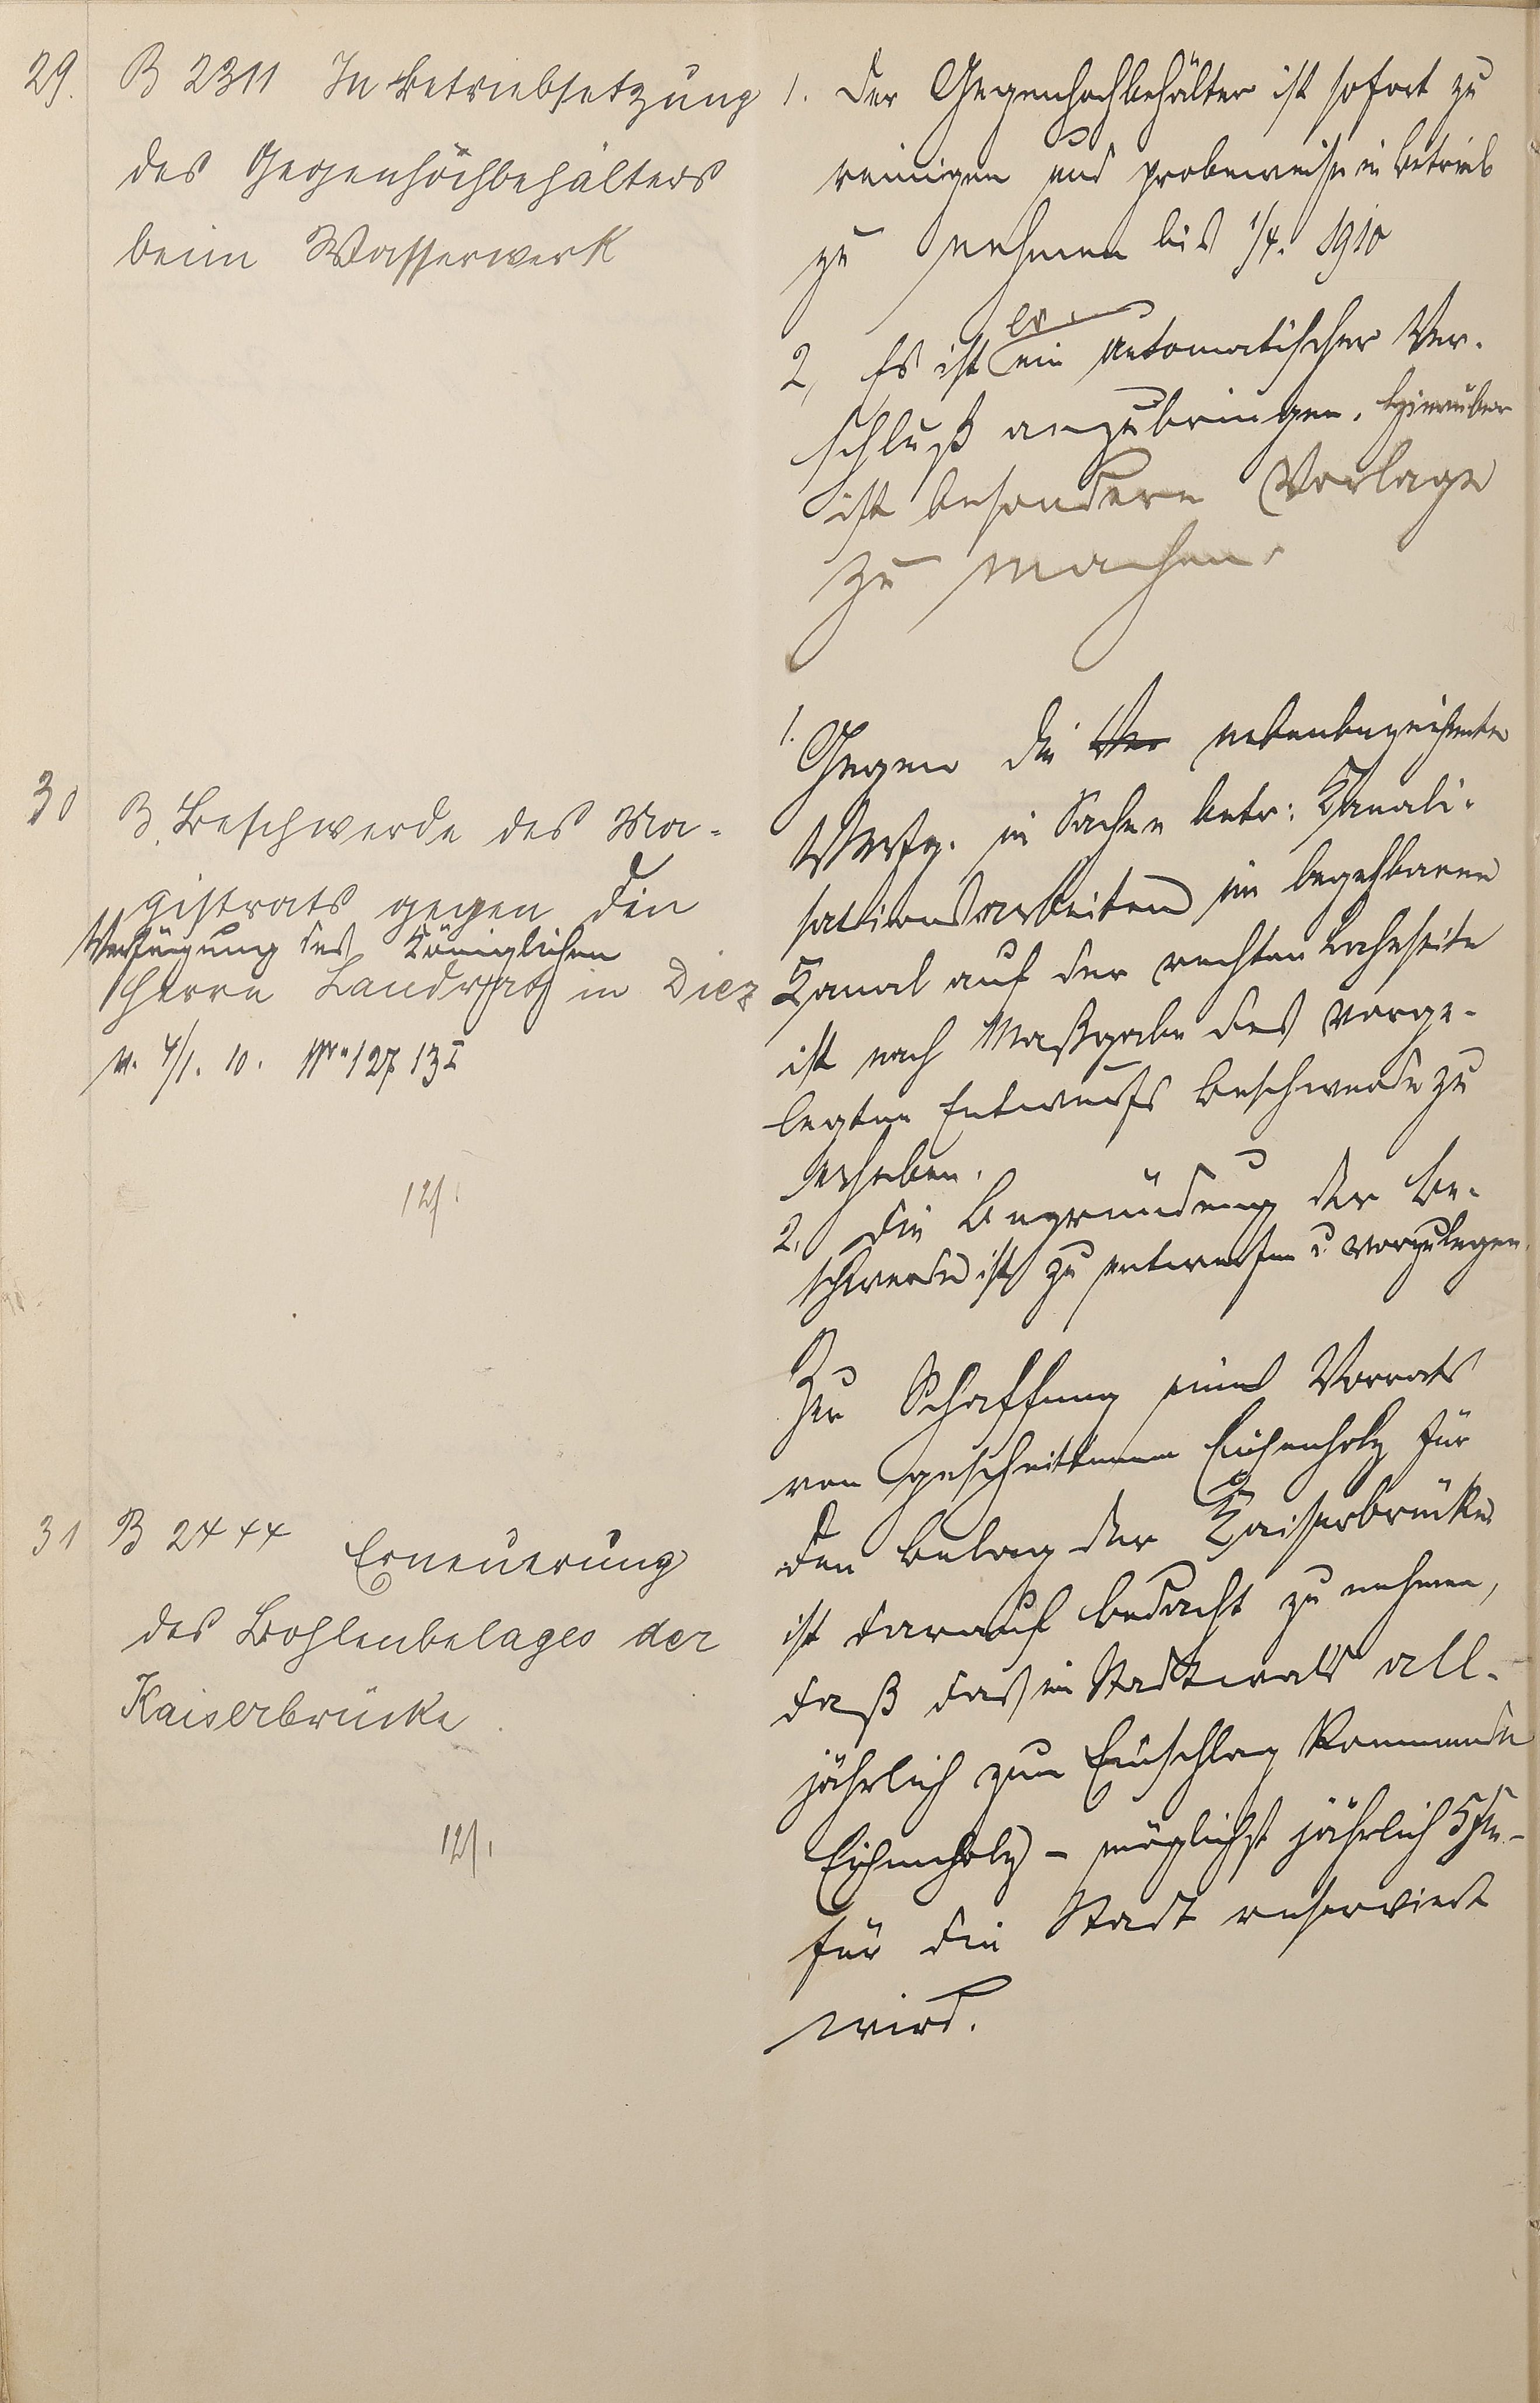 29. B 2311 In Betriebsetzung
des Gegenhochbehälters
beim Wasserwerk
1. Der Gegenhochbehälter ist sofort zu
reinigen und probeweise in Betrieb
zu nehmen bis 1/4. 1910
ev.
2, Es ist ein automatischer Ver-
schluß anzubringen. Hierüber
ist besondere Vorlage
zu machen.
30 B. Beschwerde des Ma-
gistrats gegen die
Verfügung des Königlichen
Herrn Landrats in Diez
v. 4/1. 10. Nr. 127 13 I
12/1.
1. Gegen die Ver nebenbezeichnete
Verfg. in Sachen betr: Kanali-
sationsarbeiten im begehbaren
Kanal auf der rechten Lahnseite
ist nach Maßgabe des vorge-
legten Entwurfs Beschwerde zu
erheben.
2, Die Begründung der Be-
schwerde ist zu entwerfen u. vorzulegen.
31 B 2444 Erneuerung
des Bohlenbelages der
Kaiserbrücke
12/1
Zur Schaffung eines Vorrats
von geschnittenem Eichenholz für
den Belag der Kaiserbrücke
ist darauf Bedacht zu nehmen,
daß das im Stadtwald all-
jährlich zum Einschlag kommende
Eichenholz - möglichst jährlich 5 fm -
für die Stadt reserviert
wird.